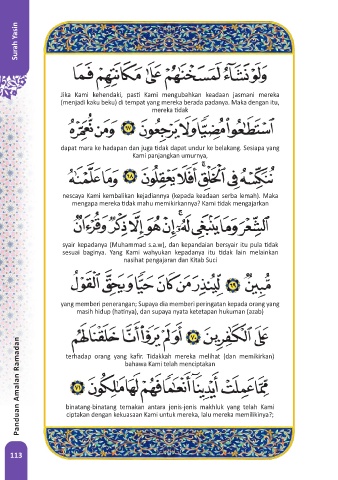 Surah Yasin
وَلَوْ نَشَآءُ لَمَسَخْنَٰهُمْ عَلَىٰ مَكَانَتِهِمْ فَمَا
Jika Kami kehendaki, pasti Kami mengubahkan keadaan jasmani mereka
(menjadi kaku beku) di tempat yang mereka berada padanya. Maka dengan itu,
mereka tidak
ٱسْتَطَٰعُوا۟ مُضِيًّا وَلَا يَرْجِعُونَ ٦٧ وَمَن نُّعَمِّرْهُ
dapat mara ke hadapan dan juga tidak dapat undur ke belakang. Sesiapa yang
Kami panjangkan umurnya,
نُنَكِّسْهُ فِى ٱلْخَلْقِ ۖ أَفَلَا يَعْقِلُونَ ٦٨ وَمَا عَلَّمْنَٰهُ
nescaya Kami kembalikan kejadiannya (kepada keadaan serba lemah). Maka
mengapa mereka tidak mahu memikirkannya? Kami tidak mengajarkan
ٱلشِّعْرَ وَمَا يَنۢبَغِى لَهُۥٓ ۚ إِنْ هُوَ إِلَّا ذِكْرٌ وَقُرْءَانٌ
syair kepadanya (Muhammad s.a.w), dan kepandaian bersyair itu pula tidak
sesuai baginya. Yang Kami wahyukan kepadanya itu tidak lain melainkan
nasihat pengajaran dan Kitab Suci
مُّبِينٌ ٦٩ لِّيُنذِرَ مَن كَانَ حَيًّا وَيَحِقَّ ٱلْقَوْلُ
yang memberi penerangan; Supaya dia memberi peringatan kepada orang yang
masih hidup (hatinya), dan supaya nyata ketetapan hukuman (azab)
عَلَى ٱلْكَٰفِرِينَ ٧٠ أَوَلَمْ يَرَوْا۟ أَنَّا خَلَقْنَا لَهُم
terhadap orang yang kafir. Tidakkah mereka melihat (dan memikirkan)
bahawa Kami telah menciptakan
مِّمَّا عَمِلَتْ أَيْدِينَآ أَنْعَٰمًا فَهُمْ لَهَا مَٰلِكُونَ ٧١
binatang-binatang ternakan antara jenis-jenis makhluk yang telah Kami
ciptakan dengan kekuasaan Kami untuk mereka, lalu mereka memilikinya?;
Panduan Amalan Ramadan
113